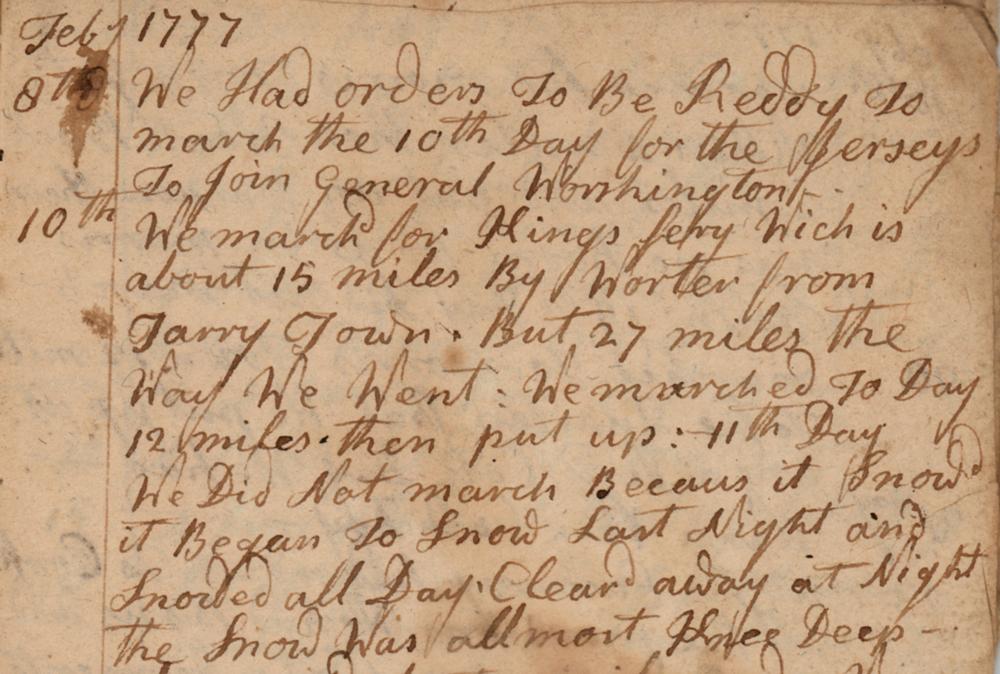 Feby 1777
8th We Had orders To Be Reddy To
march the 10th Day for the Jerseys
To Join General Worshington
10th We march'd for Kings fery Wich is
about 15 miles By Worter from
Tarry Town. But 27 miles the
Way We Went: We marched To Day
12 miles. then put up: 11th Day
We Did Not march Becaus it Snow'd
it Began To Snow Last Night and
Snowed all Day. Clear'd away at Night
the Snow Was allmost Knee Deep -